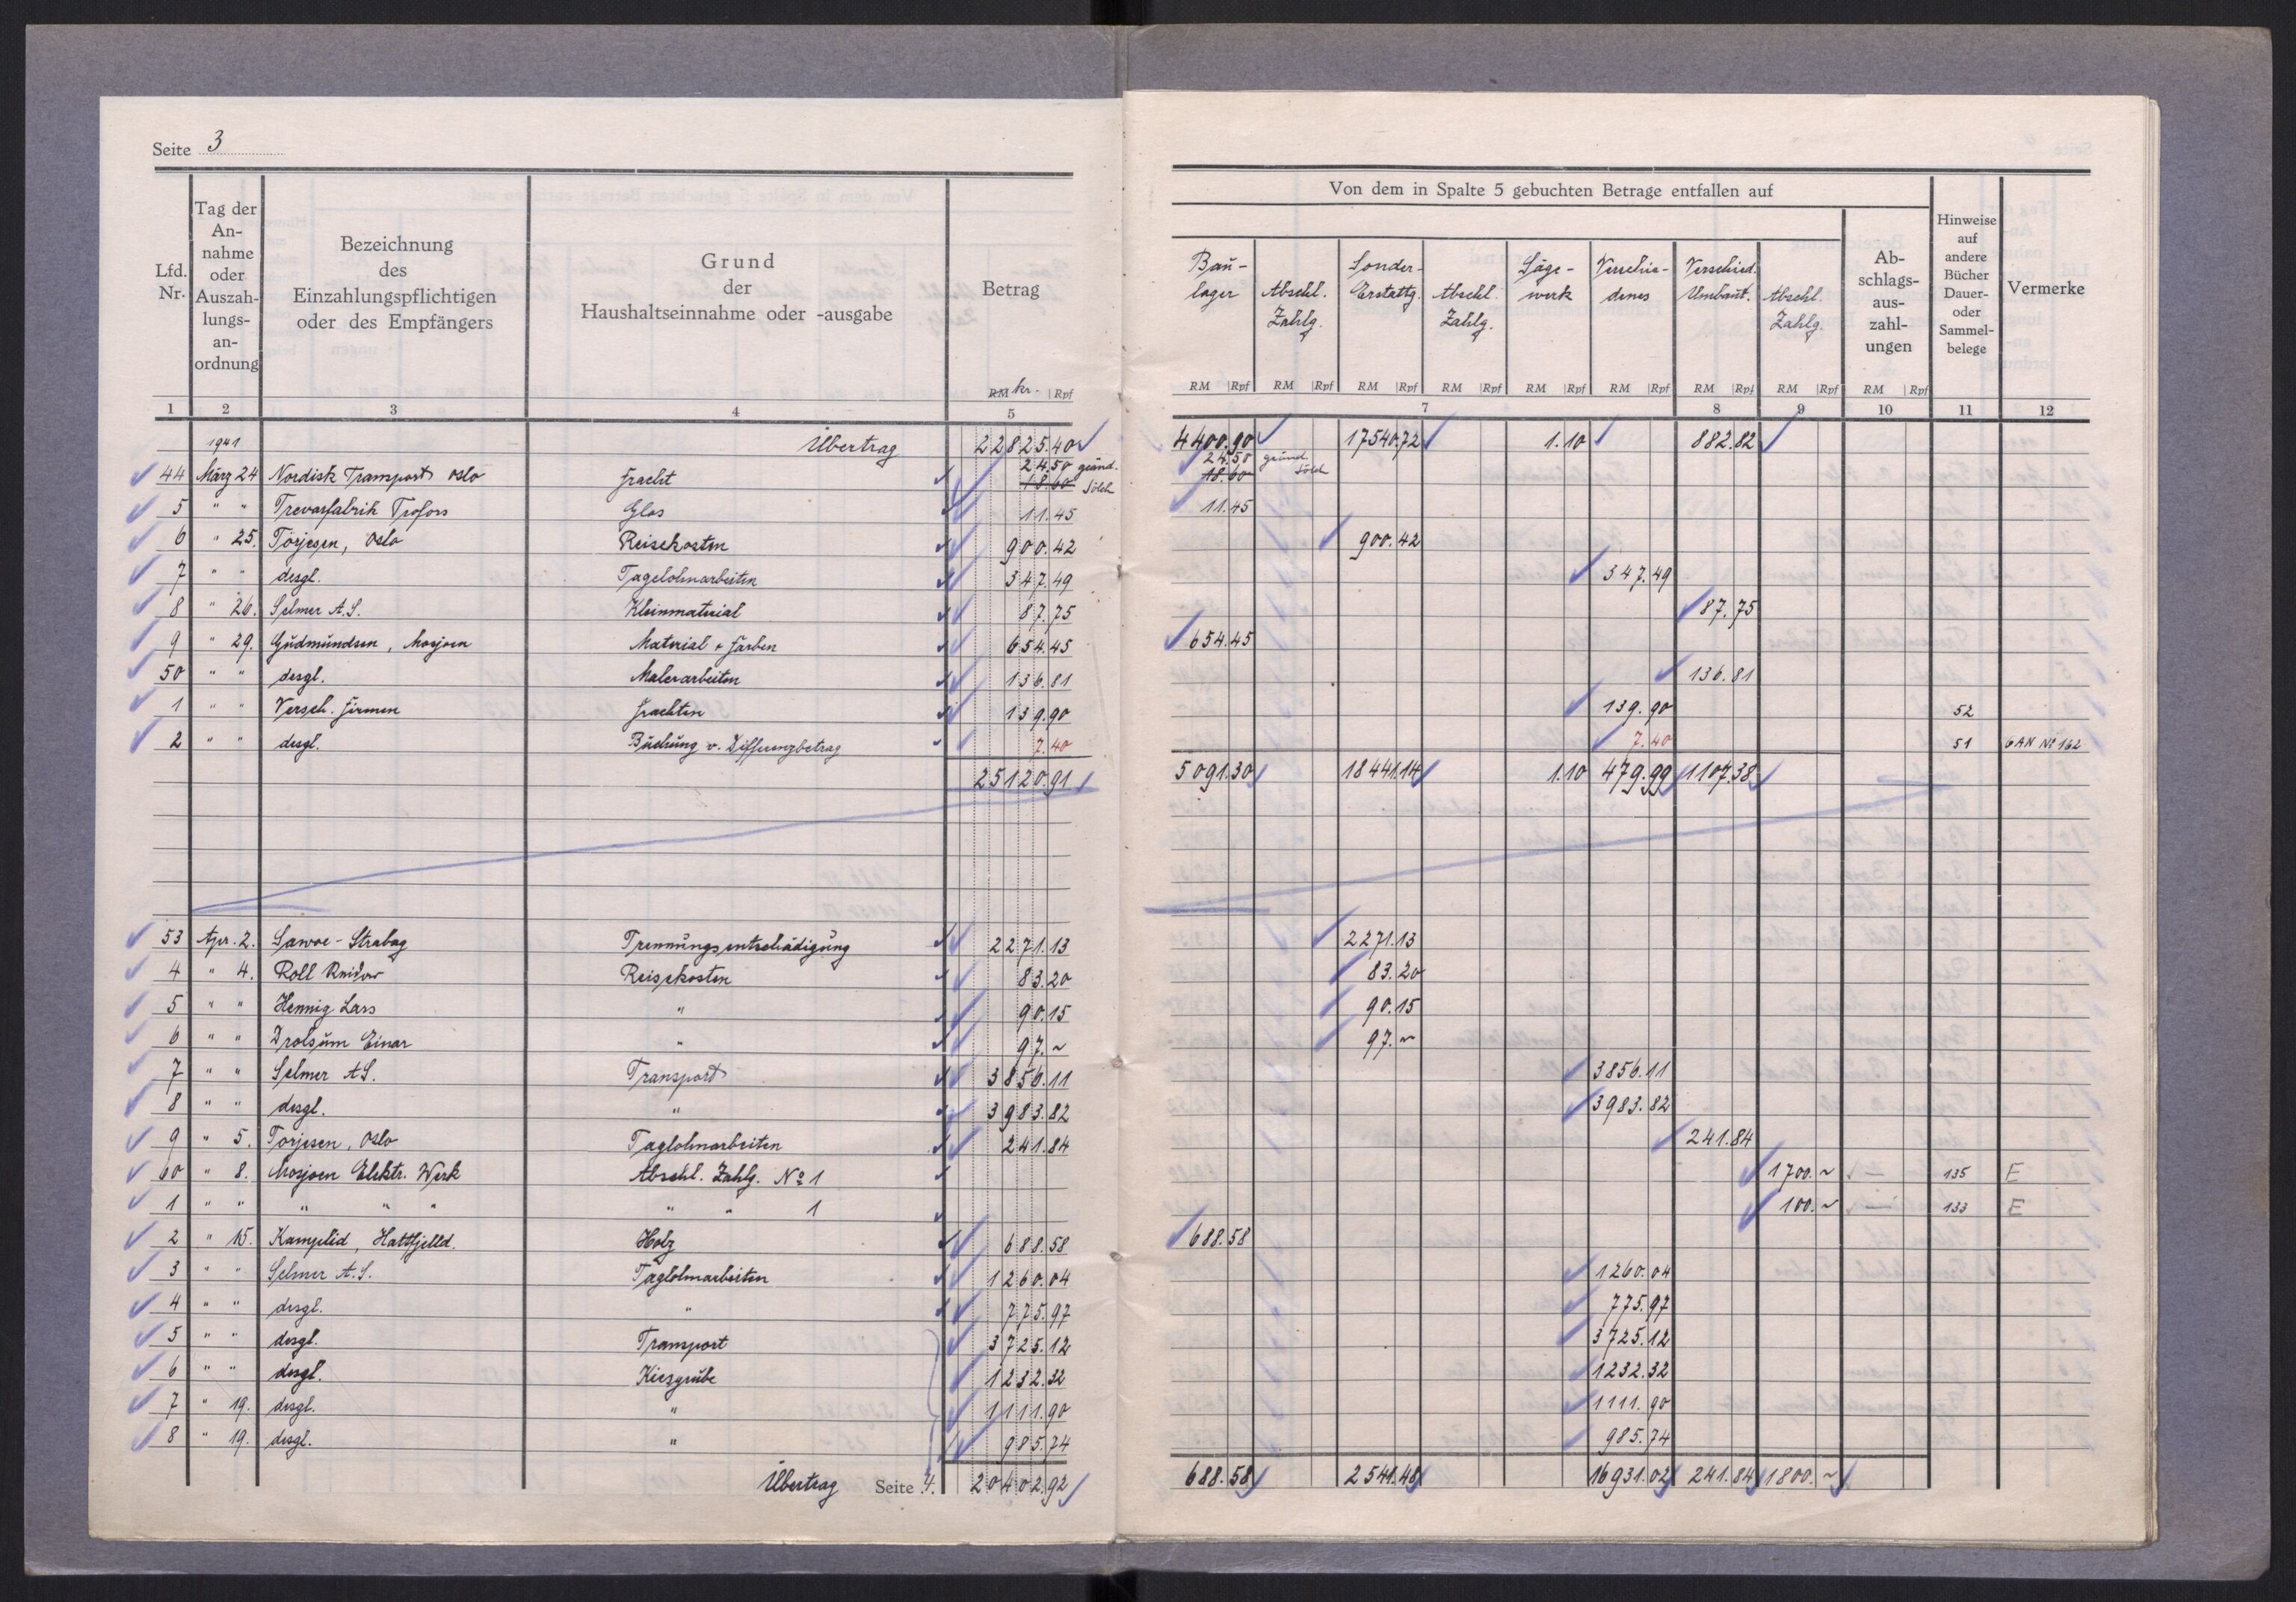 Seite 3
Lfd. Nr. | Tag der Annahme oder Auszahlungsanordnung | Bezeichnung des Einzahlungspflichtigen oder des Empfängers | Grund der Haushaltseinnahme oder -ausgabe | Betrag
RM kr. Rpf
1 2 3 4 5
1941 Übertrag 22825.40
44 März 24 Nordisk Transport Oslo Fracht 24.50 geänd. 18.60 Sölch
5 " " Trevarfabrik Trofors Glas 11.45
6 " 25. Torjesen, Oslo Reisekosten 900.42
7 " " desgl. Tagelohnarbeiten 347.49
8 " 26. Selmer A.S. Kleinmaterial 87.75
9 " 29. Gudmundsen, Mosjoen Material + Farben 654.45
50 " " desgl. Malerarbeiten 136.81
1 " " Versch. Firmen Frachten 139.90
2 " " desgl. Buchung v. Differenzbetrag 7.40
25120.91
53 Apr. 2. Sawoe-Strabag Trennungsentschädigung 2271.13
4 " 4. Roll Reidar Reisekosten 83.20
5 " " Hennig Lars " 90.15
6 " " Drolsum Einar " 97.~
7 " " Selmer A.S. Transport 3856.11
8 " " desgl. " 3983.82
9 " 5. Torjesen, Oslo Taglohnarbeiten 241.84
60 " 8. Mosjoen Elektr. Werk Abschl. Zahlg. No 1
1 " " " " " " " 1
2 " 15. Kamplid, Hattfjelld. Holz 688.58
3 " " Selmer A.S. Taglohnarbeiten 1260.04
4 " " desgl. " 775.97
5 " " desgl. Transport 3725.12
6 " " desgl. Kiesgrube 1232.32
7 " 19. desgl. " 1111.90
8 " 19. desgl. " 985.74
Übertrag Seite 4. 20402.92
Von dem in Spalte 5 gebuchten Betrage entfallen auf
Bau-lager | Abschl. Zahlg. | Sonder-Erstattg. | Abschl. Zahlg. | Säge-werk | Verschie-denes | Verschied. Umbaut. | Abschl. Zahlg. | Ab-schlags-aus-zahl-ungen | Hinweise auf andere Bücher Dauer- oder Sammel-belege | Vermerke
RM Rpf RM Rpf RM Rpf RM Rpf RM Rpf RM Rpf RM Rpf RM Rpf RM Rpf
7 8 9 10 11 12
4400.90 17540.72 1.10 882.82
24.50 geänd. 18.60 Sölch
11.45
900.42
347.49
87.75
654.45
136.81
139.90 52
7.40 51 GAN No 162
5091.30 18441.14 1.10 479.99 1107.38
2271.13
83.20
90.15
97.~
3856.11
3983.82
241.84
1700.~ — 135 E
100.~ — 133 E
688.58
1260.04
775.97
3725.12
1232.32
1111.90
985.74
688.58 2541.48 16931.02 241.84 1800.~